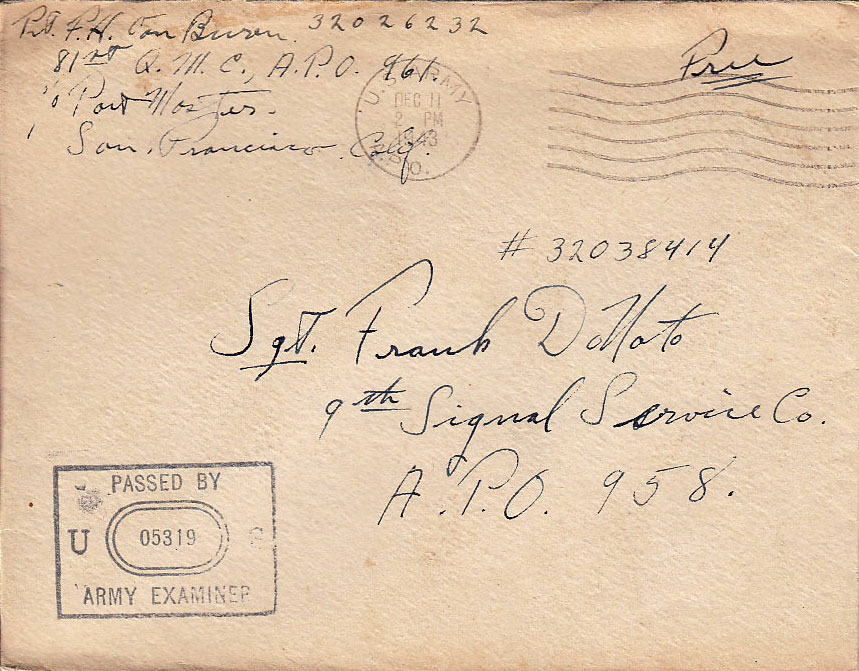 Pvt. F.H. Van Buren. 32026232
81st Q.M.C., A.P.O. 961.
c/o Post Master.
San. Francisco. Calif.
Free
U.S. ARMY
DEC 11
2 PM
1943
A.P.O.
# 32038414
Sgt. Frank DeMato
9th Signal Service Co.
A.P.O. 958.
PASSED BY
U 05319 S
ARMY EXAMINER